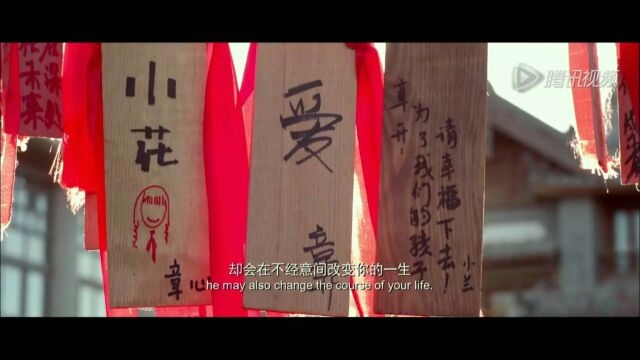 腾讯视频
小花
章心
爱
章
章开：
为了我们的孩子
请幸福下去！
小兰
却会在不经意间改变你的一生
he may also change the course of your life.